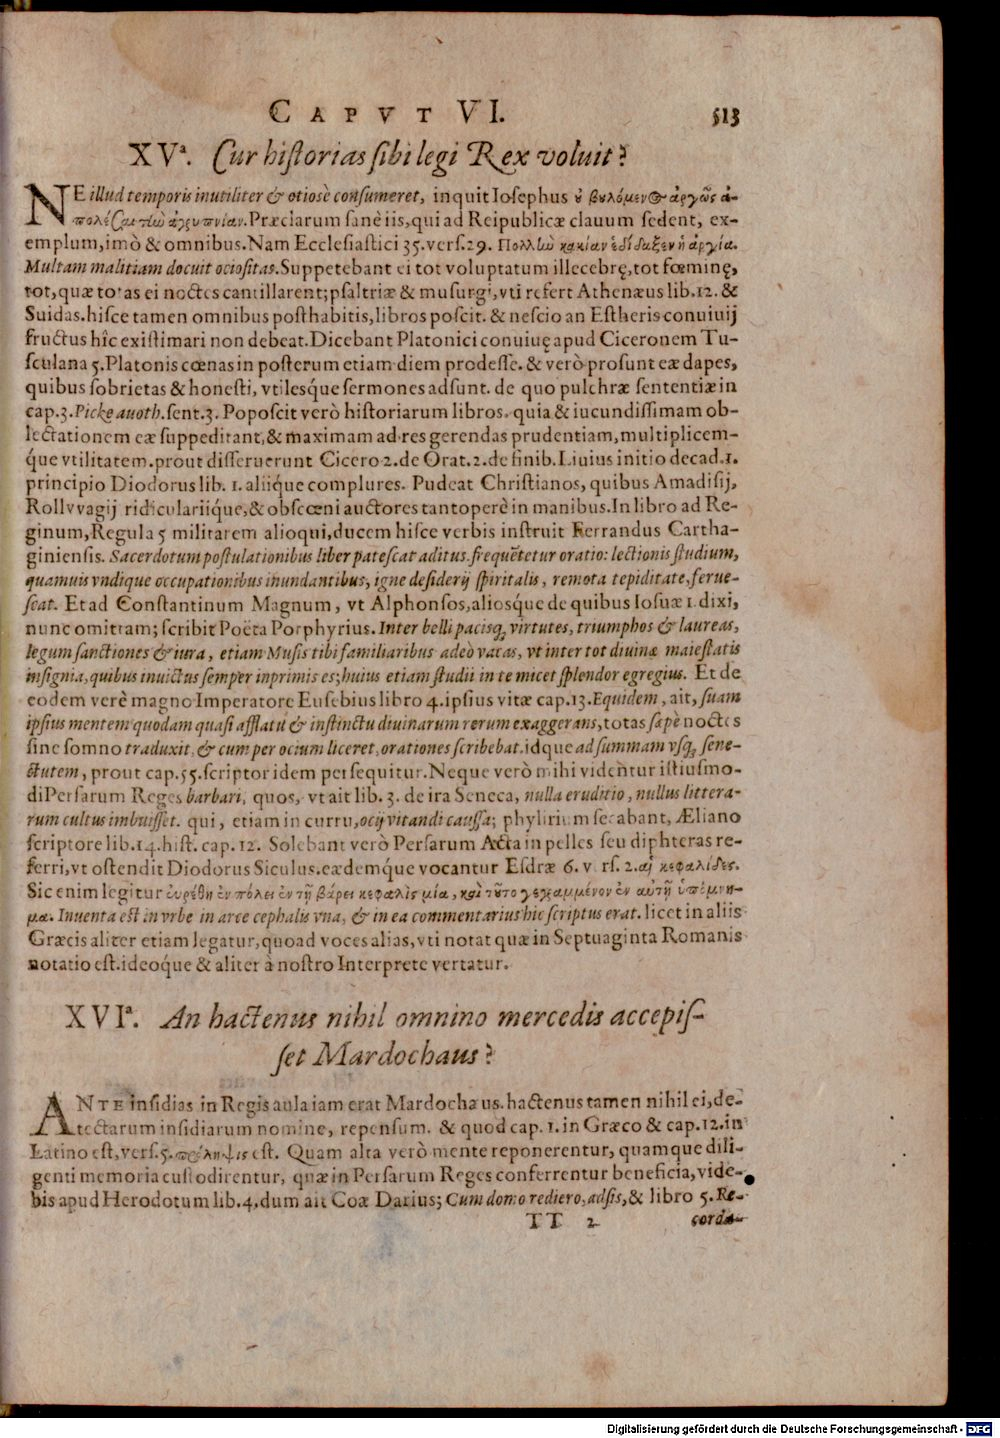 CAPVT VI. 513
XVª. Cur historias sibi legi Rex voluit?
NE illud temporis inutiliter & otiosè consumeret, inquit Iosephus οὐ βυλόμενος ἀργῶς ἀ-
πολέσαι τὼ ἀγρυπνίαν. Præclarum sanè iis, qui ad Reipublicæ clauum sedent, ex-
emplum, imò & omnibus. Nam Ecclesiastici 35. vers. 29. Πολλὼ κακίαν ἐδίδαξεν ἡ ἀργία.
Multam malitiam docuit ociositas. Suppetebant ei tot voluptatum illecebrę, tot fœminę,
tot, quæ totas ei noctes cantillarent; psaltriæ & musurgi, vti refert Athenæus lib. 12. &
Suidas. hisce tamen omnibus posthabitis, libros poscit. & nescio an Estheris conuiuij
fructus hîc existimari non debeat. Dicebant Platonici conuiuę apud Ciceronem Tu-
sculana 5. Platonis cœnas in posterum etiam diem prodesse. & verò prosunt eæ dapes,
quibus sobrietas & honesti, vtilesq́ue sermones adsunt. de quo pulchræ sententiæ in
cap. 3. Picke auoth. sent. 3. Poposcit verò historiarum libros. quia & iucundissimam ob-
lectationem eæ suppeditant, & maximam ad res gerendas prudentiam, multiplicem-
q́ue vtilitatem. prout disseruerunt Cicero 2. de Orat. 2. de finib. Liuius initio decad. 1.
principio Diodorus lib. 1. aliiq́ue complures. Pudeat Christianos, quibus Amadisij,
Rollvvagij ridiculariiq́ue, & obscœni auctores tantoperè in manibus. In libro ad Re-
ginum, Regula 5 militarem alioqui, ducem hisce verbis instruit Ferrandus Cartha-
giniensis. Sacerdotum postulationibus liber patescat aditus. frequētetur oratio: lectionis studium,
quamuis vndique occupationibus inundantibus, igne desiderij spiritalis, remota tepiditate, ferue-
scat. Et ad Constantinum Magnum, vt Alphonsos, aliosq́ue de quibus Iosuæ 1. dixi,
nunc omittam; scribit Poëta Porphyrius. Inter belli pacisq; virtutes, triumphos & laureas,
legum sanctiones & iura, etiam Musis tibi familiaribus adeò vacas, vt inter tot diuinæ maiestatis
insignia, quibus inuictus semper inprimis es; huius etiam studii in te micet splendor egregius. Et de
eodem verè magno Imperatore Eusebius libro 4. ipsius vitæ cap. 13. Equidem, ait, suam
ipsius mentem quodam quasi afflatu & instinctu diuinarum rerum exaggerans, totas sæpè noctes
sine somno traduxit, & cum per ocium liceret, orationes scribebat. idque ad summam vsq; sene-
ctutem, prout cap. 55. scriptor idem persequitur. Neque verò mihi videntur istiusmo-
di Persarum Reges barbari, quos, vt ait lib. 3. de ira Seneca, nulla eruditio, nullus littera-
rum cultus imbuisset. qui, etiam in curru, ocij vitandi caussa; phylirium secabant, Æliano
scriptore lib. 14. hist. cap. 12. Solebant verò Persarum Acta in pelles seu diphteras re-
ferri, vt ostendit Diodorus Siculus. eædemque vocantur Esdræ 6. vers. 2. αἱ κεφαλίδες.
Sic enim legitur εὑρέθη ἐν πόλει ἐν τῇ βάρει κεφαλὶς μία, καὶ τῦτο γεγραμμένον ἐν αὐτῇ ὑπέμνη-
μα. Inuenta est in vrbe in arce cephalis vna, & in ea commentarius hic scriptus erat. licet in aliis
Græcis aliter etiam legatur, quoad voces alias, vti notat quæ in Septuaginta Romanis
notatio est. ideoq́ue & aliter à nostro Interprete vertatur.
XVIª. An hactenus nihil omnino mercedis accepis-
set Mardochæus?
ANTE insidias in Regis aula iam erat Mardochæus. hactenus tamen nihil ei, de-
tectarum insidiarum nomine, repensum. & quod cap. 1. in Græco & cap. 12. in
Latino est, vers. 5. πρόληψις est. Quam alta verò mente reponerentur, quamque dili-
genti memoria custodirentur, quæ in Persarum Reges conferrentur beneficia, vide-
bis apud Herodotum lib. 4. dum ait Coæ Darius; Cum domo rediero, adsis, & libro 5. Re-
TT 2 corda-
Digitalisierung gefördert durch die Deutsche Forschungsgemeinschaft - DFG